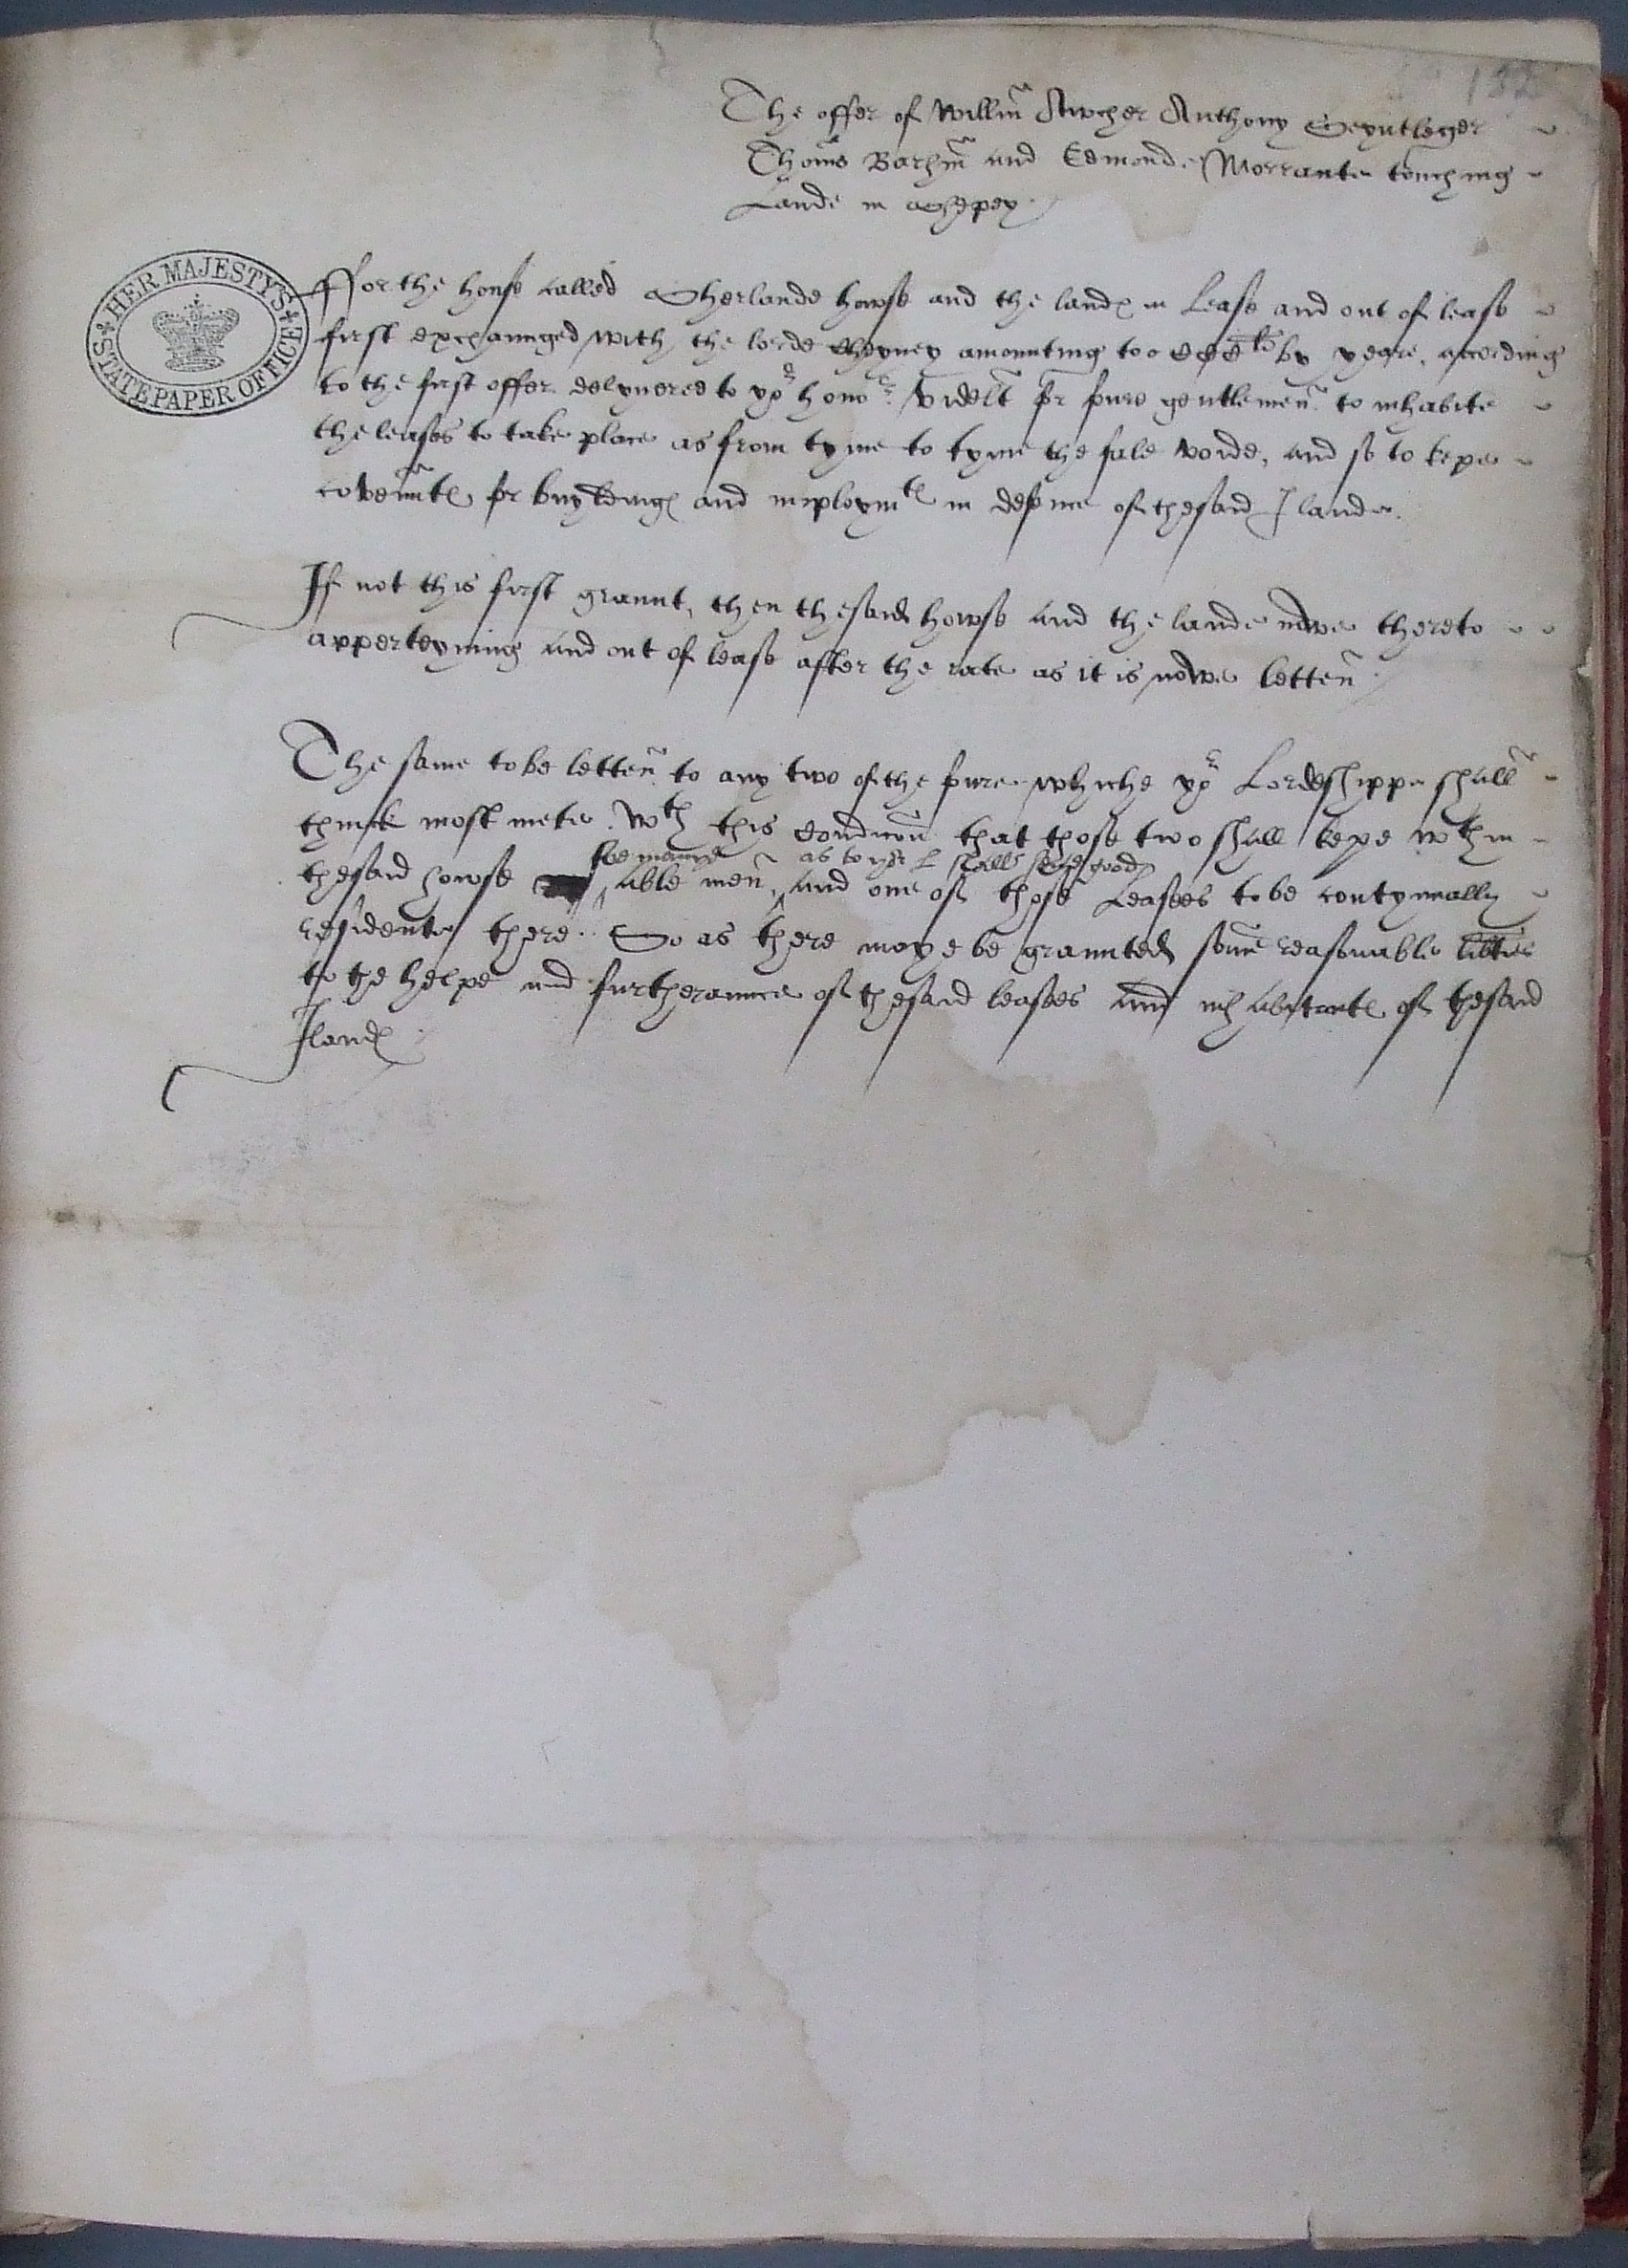 132
The offer of Willm Awcher Anthony Seyntleger
Thoms Barhm and Edmonde Morrante touching
Lande in Shepey
HER MAJESTY'S STATE PAPER OFFICE
ffor the house called Sherlande howse and the landes in Lease and out of lease
first exchaunged with the lorde Cheyney amounting to CCC li by yeare, according
to the first offer delyuered to yor honor videlt for foure gentlemen to inhabite
the leases to take place as from tyme to tyme the fale voide, and so to kepe
covennts for buyldings and imploymts in defence of thesaid Ilande.
If not this first graunt, then thesaid howse and the lande nowe thereto
apperteyning and out of lease after the rate as it is nowe letten
The same to be letten to any two of the foure whiche yor Lordeshippe shall
think most mete. Wth this condicon that those two shall kepe wthin
so many as to yor L shall seme good
thesaid howse able men, and one of those Leasees to be contynually
residente there. So as there maye be graunted some reasonable libties
to the helpe and furtheraunce of thesaid leasees and inhabitants of thesaid
Iland